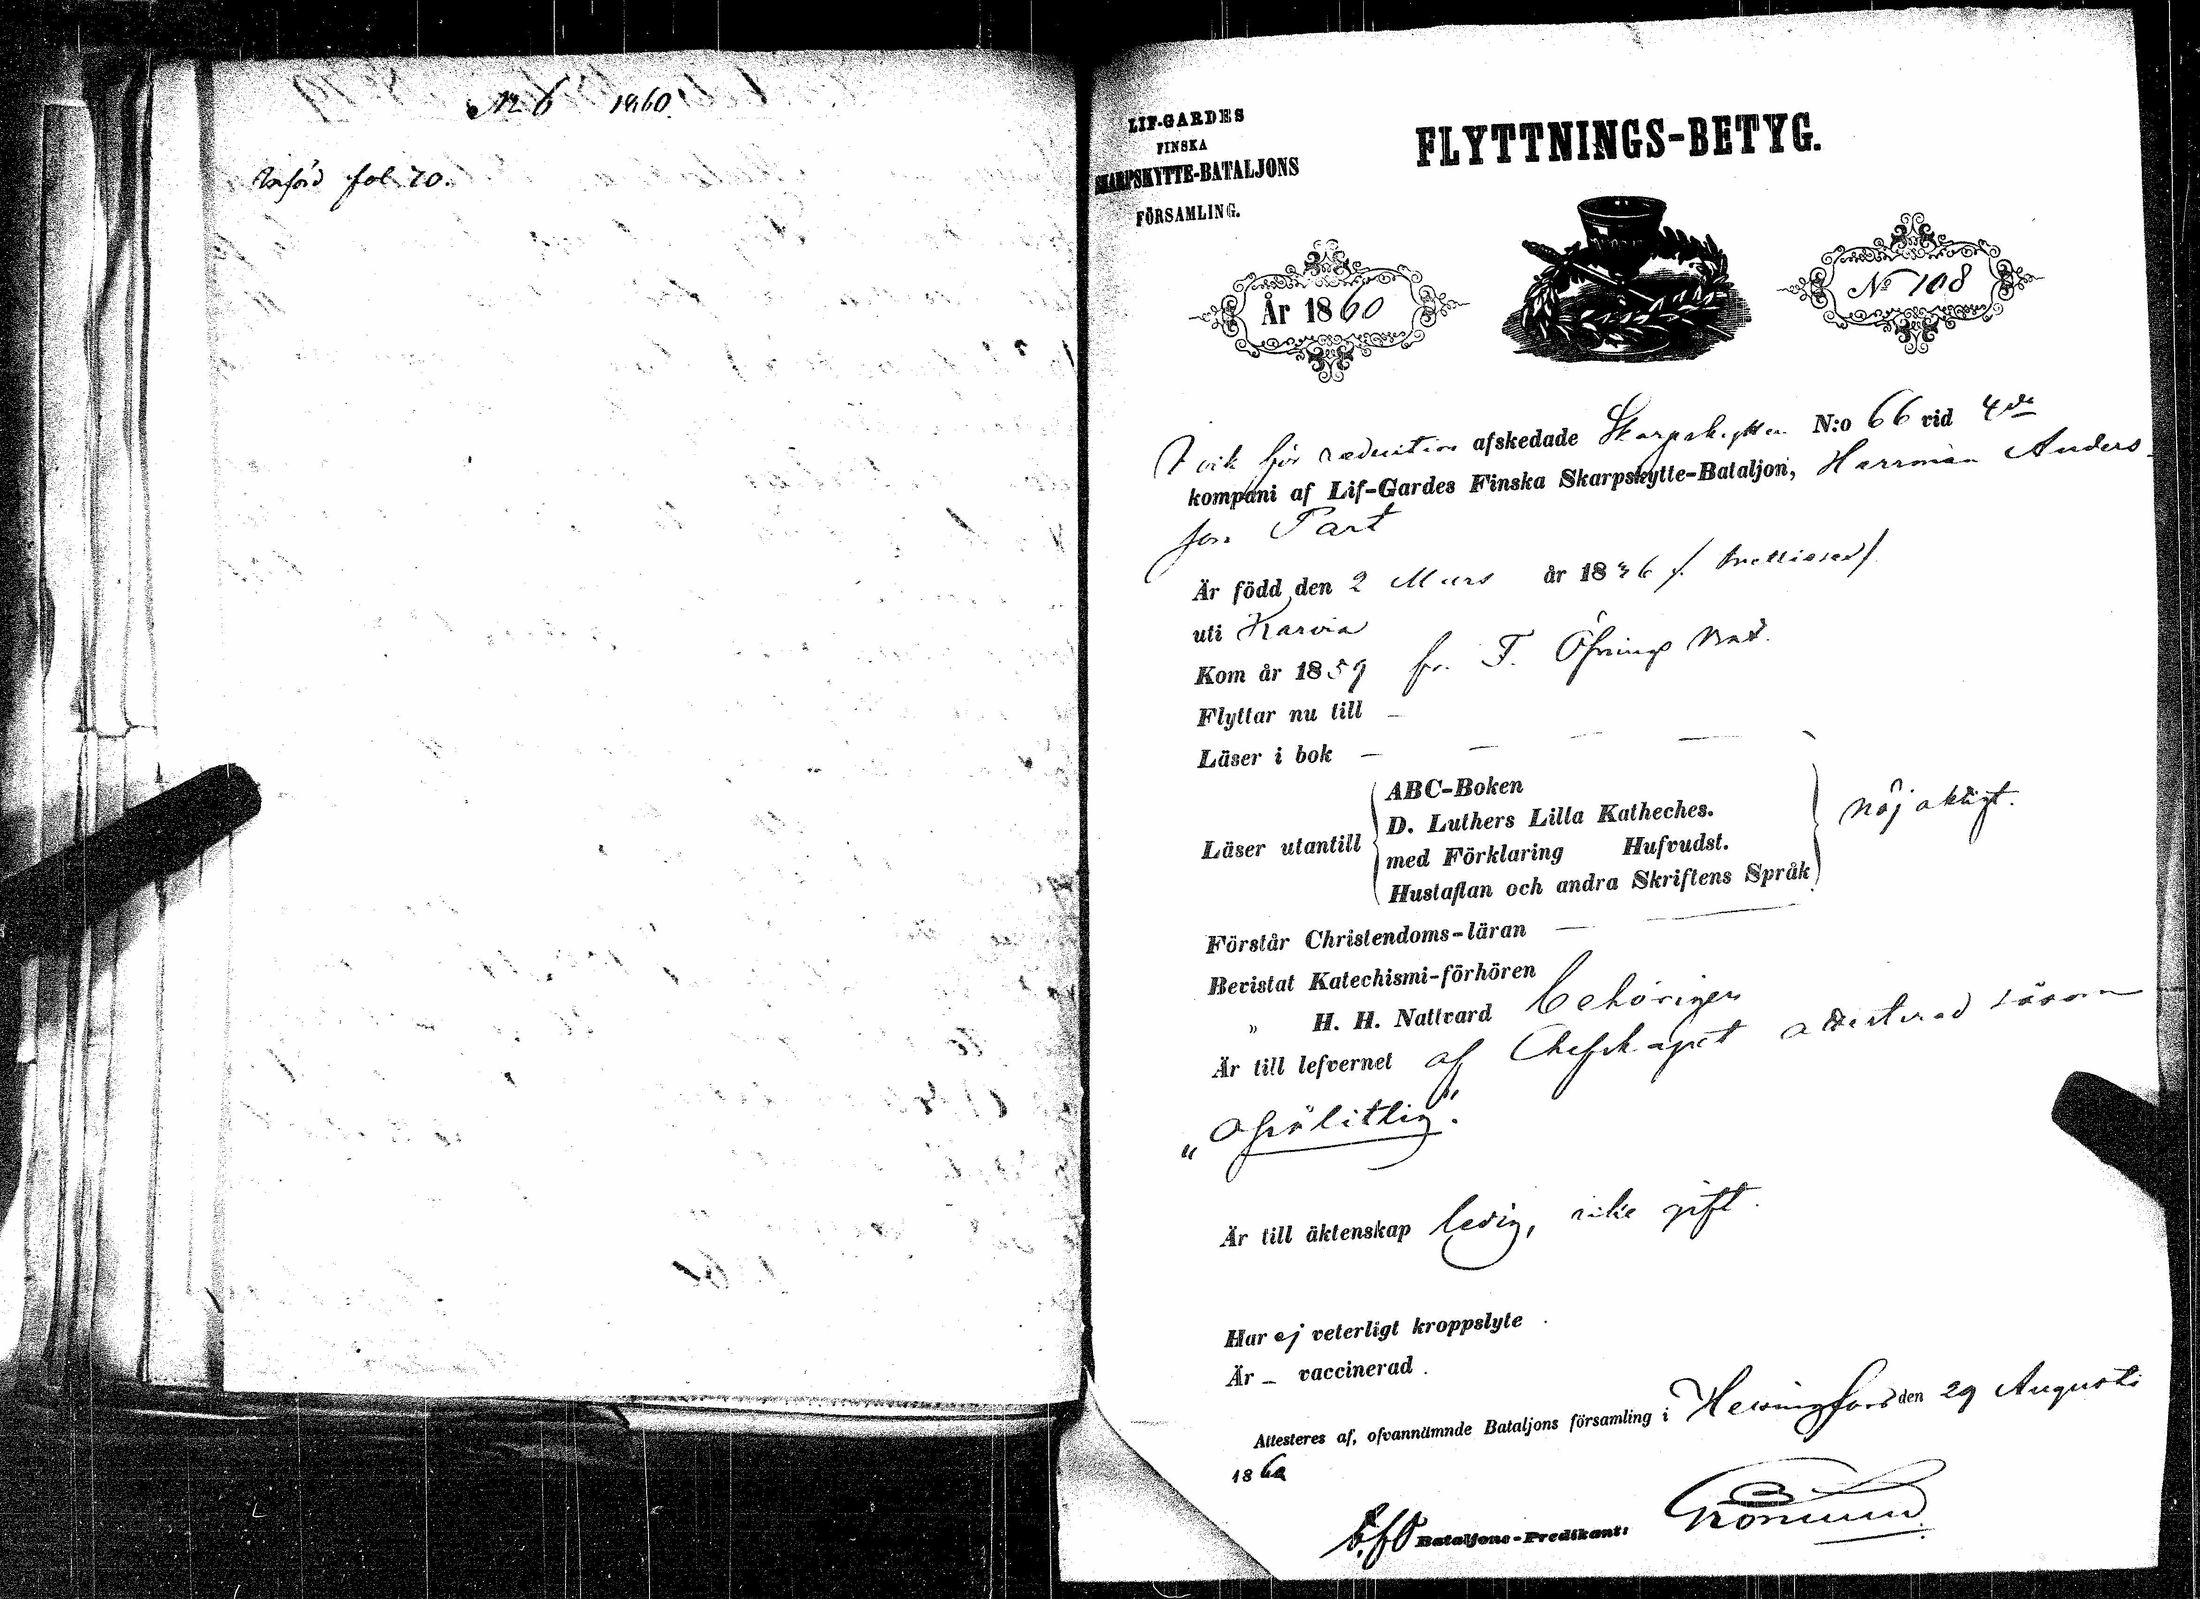 N:o 6 1860.
Införd fol. 70.
LIF-GARDES
FINSKA
SKARPSKYTTE-BATALJONS
FÖRSAMLING.
FLYTTNINGS-BETYG.
År 1860
N:o 108
för reduction afskedade Skarpskytten N:o 66 vid 4de
kompani af Lif-Gardes Finska Skarpskytte-Bataljon, Herrman Anders-
son Part
Är född den 2 Mars år 1836
uti Karvia
Kom år 1859 fr. F. Öfnings Bat.
Flyttar nu till —
Läser i bok — — — —
Läser utantill
ABC-Boken
D. Luthers Lilla Katheches.
med Förklaring Hufvudst.
Hustaflan och andra Skriftens Språk
nöjaktigt.
Förstår Christendoms-läran — —
Bevistat Katechismi-förhören
" H. H. Nattvard behörigen
Är till lefvernet af Chefskapet attesterad såsom
"oförvitlig".
Är till äktenskap ledig, icke gift.
Har ej veterligt kroppslyte.
Är — vaccinerad.
Attesteres af, ofvannämnde Bataljons församling i Helsingfors den 29 Augusti
1860
Bataljons-Predikant:
Grönlund